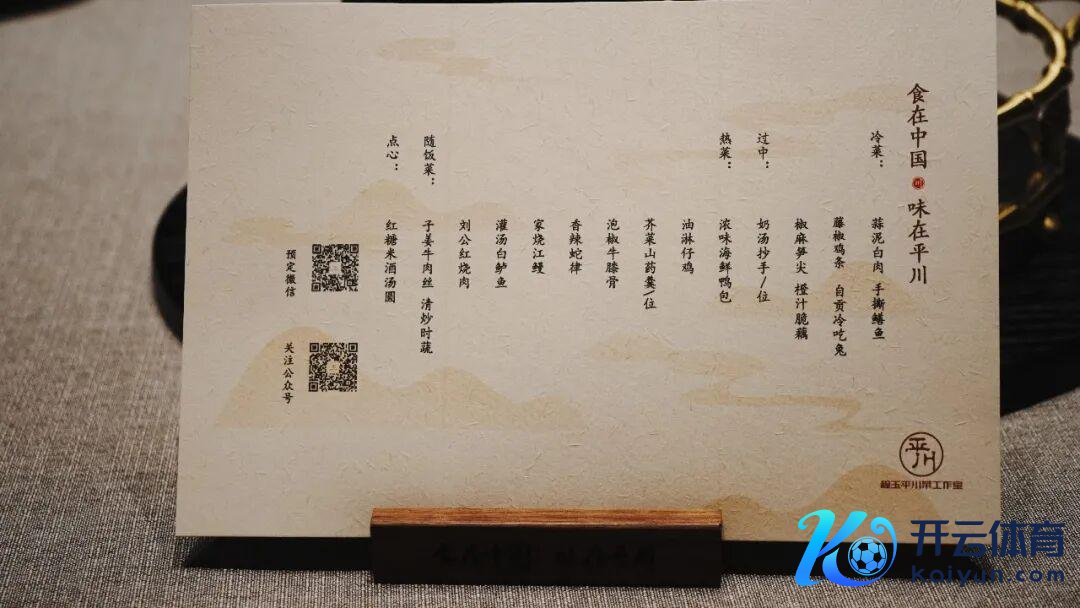 食在中国 味在平川
冷菜：
蒜泥白肉 手撕鳝鱼
藤椒鸡条 自贡冷吃兔
椒麻笋尖 橙汁脆藕
过中：
奶汤抄手/位
热菜：
浓味海鲜鸭包
油淋仔鸡
芥菜山药羹/位
泡椒牛膝骨
香辣蛇律
家烧江鳗
灌汤白鲈鱼
刘公红烧肉
随饭菜：
子姜牛肉丝 清炒时蔬
点心：
红糖米酒汤圆
预定微信
关注公众号
平川
程玉平川菜工作室
食在中国 味在平川
开云体育
kaiyun.com